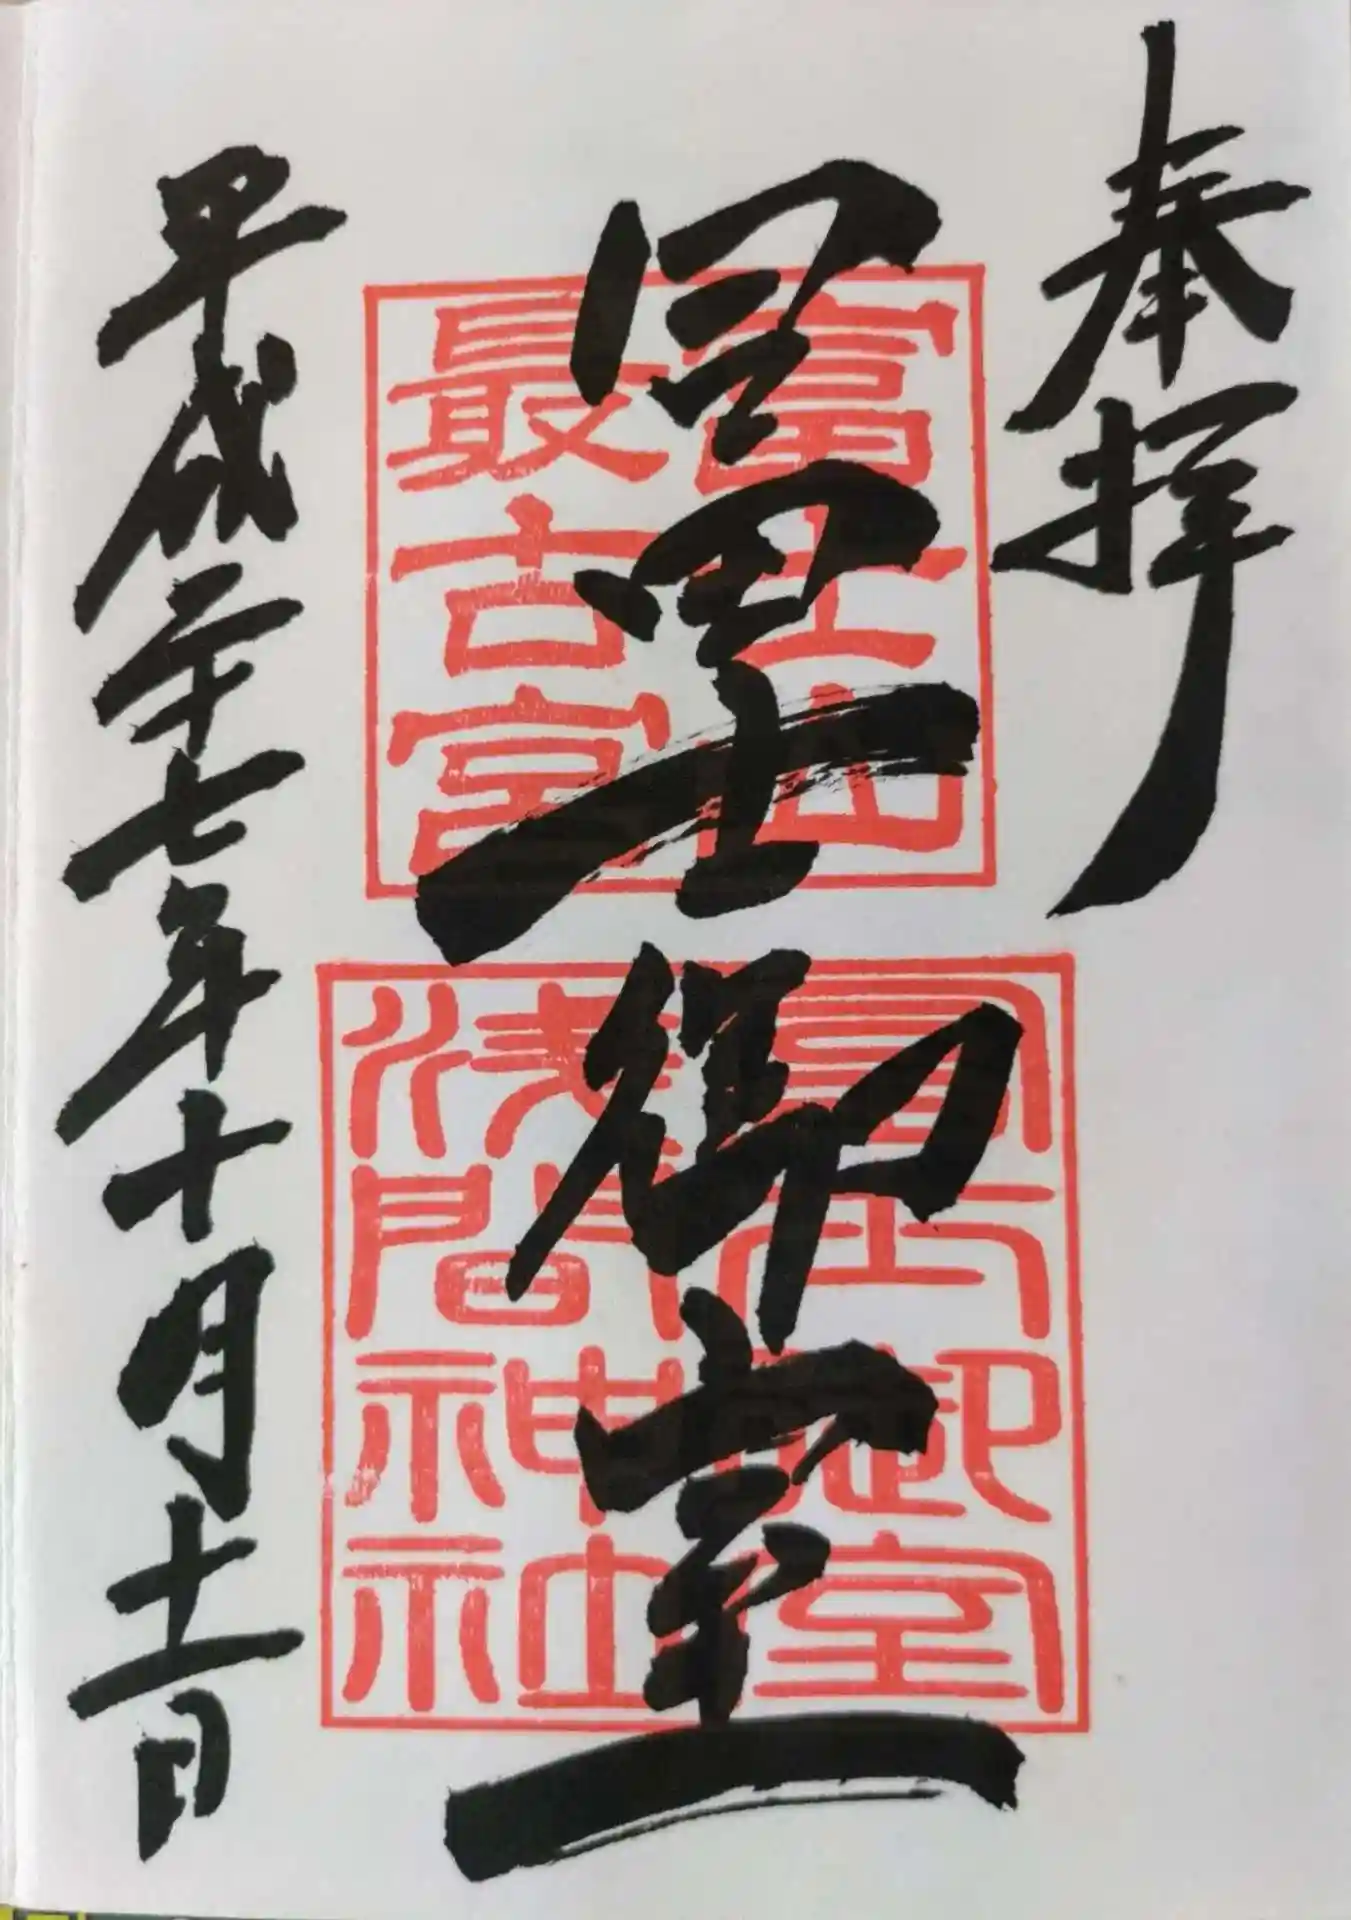 奉拝
冨士御室
富士山
最古宮
冨士御室
浅間神社
平成二十七年十月十一日